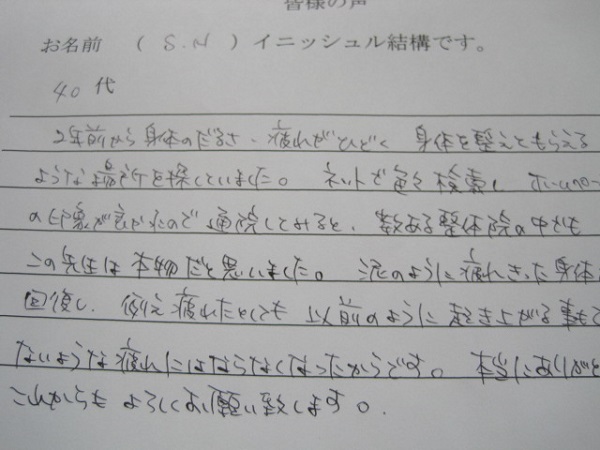 皆様の声
お名前 ( S.N ) イニッシュル結構です。
40代
2年前から身体のだるさ、疲れがひどく 身体を整えてもらえる
ような場所を探していました。 ネットで色々検索し ホームペー
の印象が良かったので通院してみると、数ある整体院の中でも
この先生は本物だと思いました。 泥のように疲れきった身体
回復し、例え疲れたとしても 以前のように起き上がる事もで
ないような疲れにはならなくなったからです。 本当にありがと
これからもよろしくお願い致します。